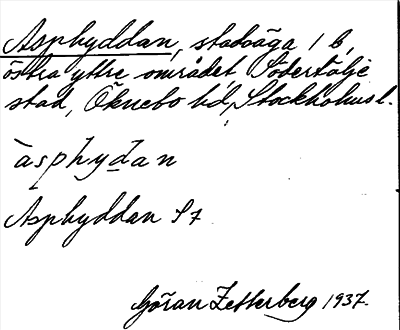 Asphyddan, stadsäga 1 b,
östra yttre området, Södertälje
stad, Öknebo hd, Stockholms l.
àsphydan
Asphyddan S7
Göran Zetterberg 1937.